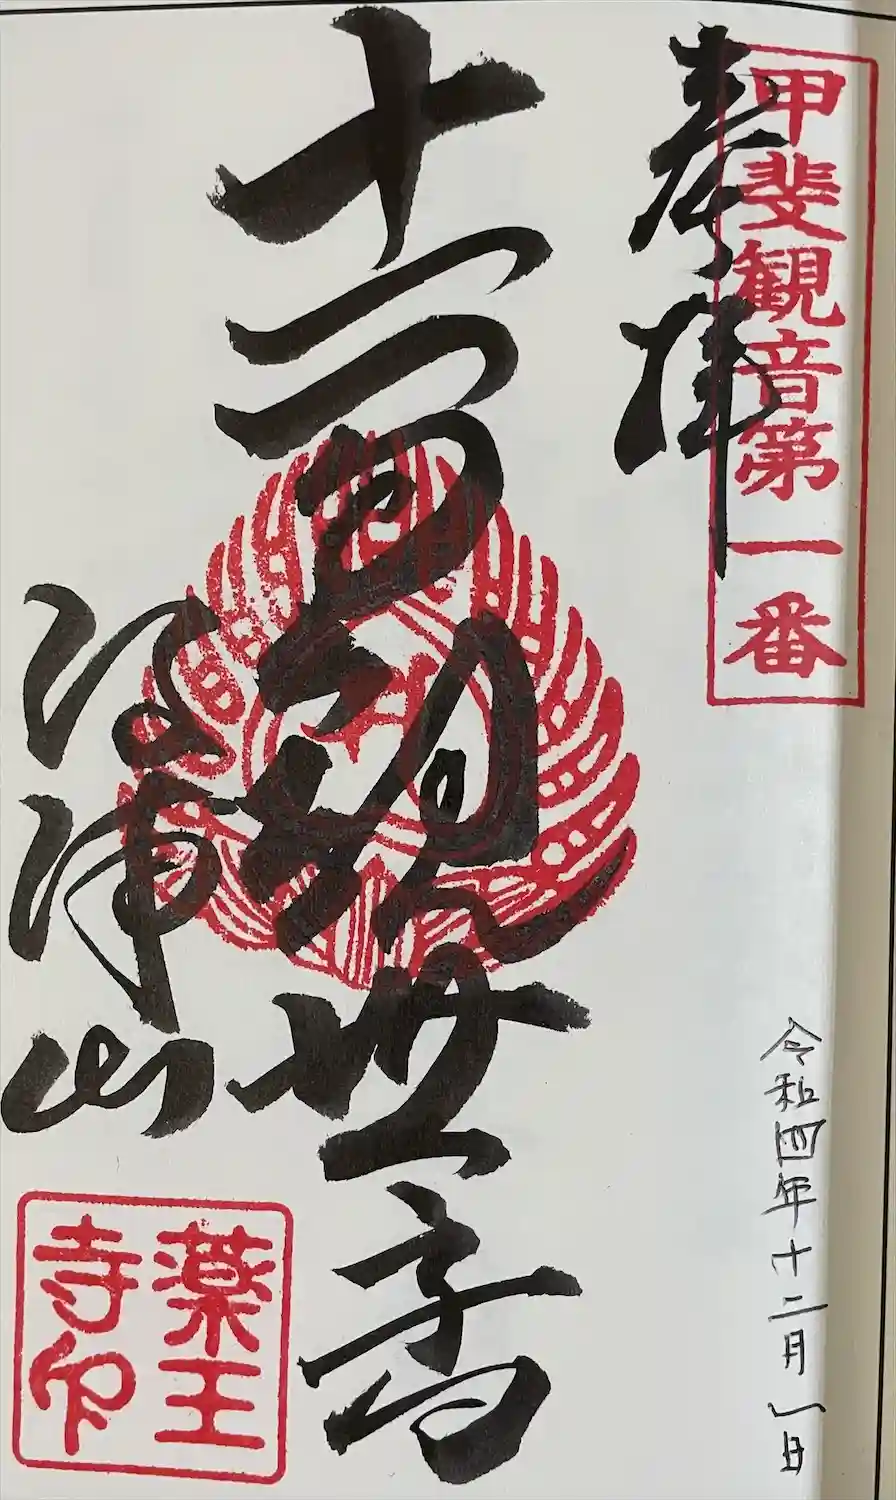 甲斐観音第一番
奉拝
令和四年十二月一日
十一面観世音
河浦山
薬王
寺印